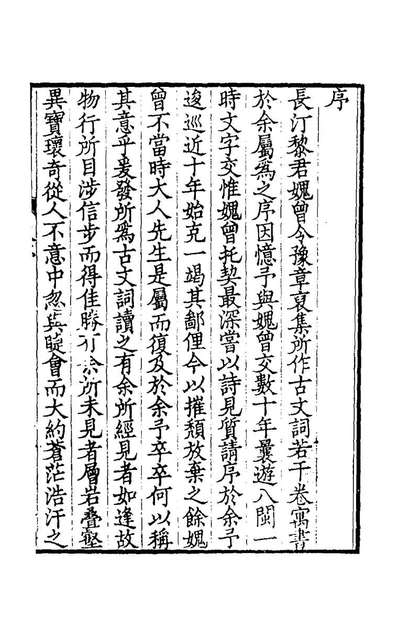 序
長汀黎君媿曾令豫章裒集所作古文詞若干卷寓書
於余屬爲之序因憶予與媿曾交數十年曩遊八閩一
時文字交惟媿曾托契最深嘗以詩見質請序於余予
逡巡近十年始克一竭其鄙俚今以摧頹放棄之餘媿
曾不當時大人先生是屬而復及於余予卒卒何以稱
其意乎爰發所爲古文詞讀之有余所經見者如逢故
物行所目涉信步而得佳勝有余所未見者層岩疊壑
異寶瓌奇從人不意中忽與睫會而大約蒼茫浩汗之